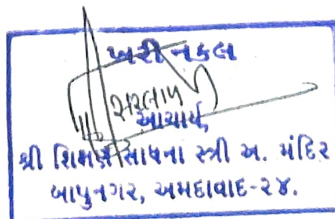 ખરી નકલ
આચાર્ય,
શ્રી શિક્ષણ સાધના સ્ત્રી અ. મંદિર
બાપુનગર, અમદાવાદ-૨૪.